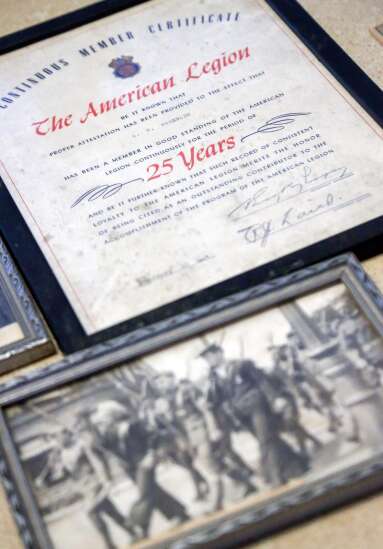 CONTINUOUS MEMBER CERTIFICATE
The American Legion
BE IT KNOWN THAT
PROPER ATTESTATION HAS BEEN PROVIDED TO THE EFFECT THAT
HAS BEEN A MEMBER IN GOOD STANDING OF THE AMERICAN
LEGION CONTINUOUSLY FOR THE PERIOD OF
25 Years
AND BE IT FURTHER KNOWN THAT SUCH RECORD OF CONSISTENT
LOYALTY TO THE AMERICAN LEGION MERITS THE HONOR
OF BEING CITED AS AN OUTSTANDING CONTRIBUTOR TO THE
ACCOMPLISHMENT OF THE PROGRAM OF THE AMERICAN LEGION